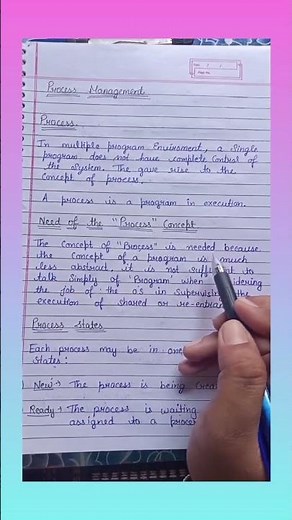 Process Management
Process
In multiple program Enuirsment, a Single
program does not have complete Control of
the System. The gave rise to the
Concept of process.
A process is a program in execution.
Need of the "Process" Concept
The Concept of "Process" is needed because
the Concept of a program is much
less abstract, it is not to
talk Simply of 'Program' when
the Job of the OS in the
execution of shared or
Process States
Each process may be in one
States:
New → The process is being
Ready → The process is waiting
assigned to a